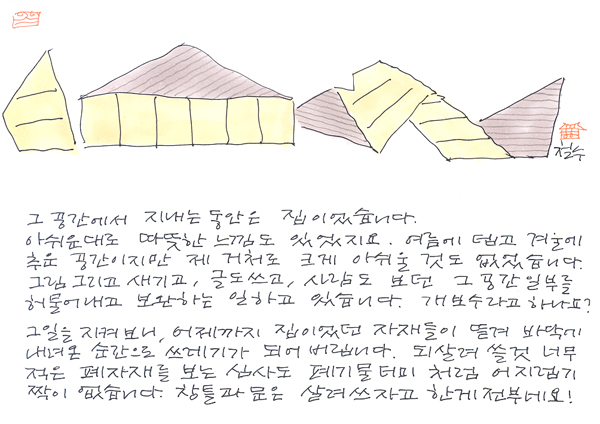 철수
그 공간에서 지내는 동안은 집이었습니다.
아쉬운대로 따뜻한 느낌도 있었지요. 여름에 덥고 겨울에
추운 공간이지만 제 거처로 크게 아쉬울 것도 없었습니다.
그림 그리고 새기고, 글도쓰고, 사람도 보던 그 공간 일부를
허물어내고 보완하는 일하고 있습니다. 개보수라고 하나요?
그일을 지켜보니, 어제까지 집이었던 자재들이 뜯겨 바닥에
내려온 순간으로 쓰레기가 되어 버립니다. 되살려 쓸것 너무
적은 폐자재를 보는 심사도 폐기물 터미 처럼 어지럽기
짝이 없습니다. 창틀과 문은 살려쓰자고 한게 전부네요!